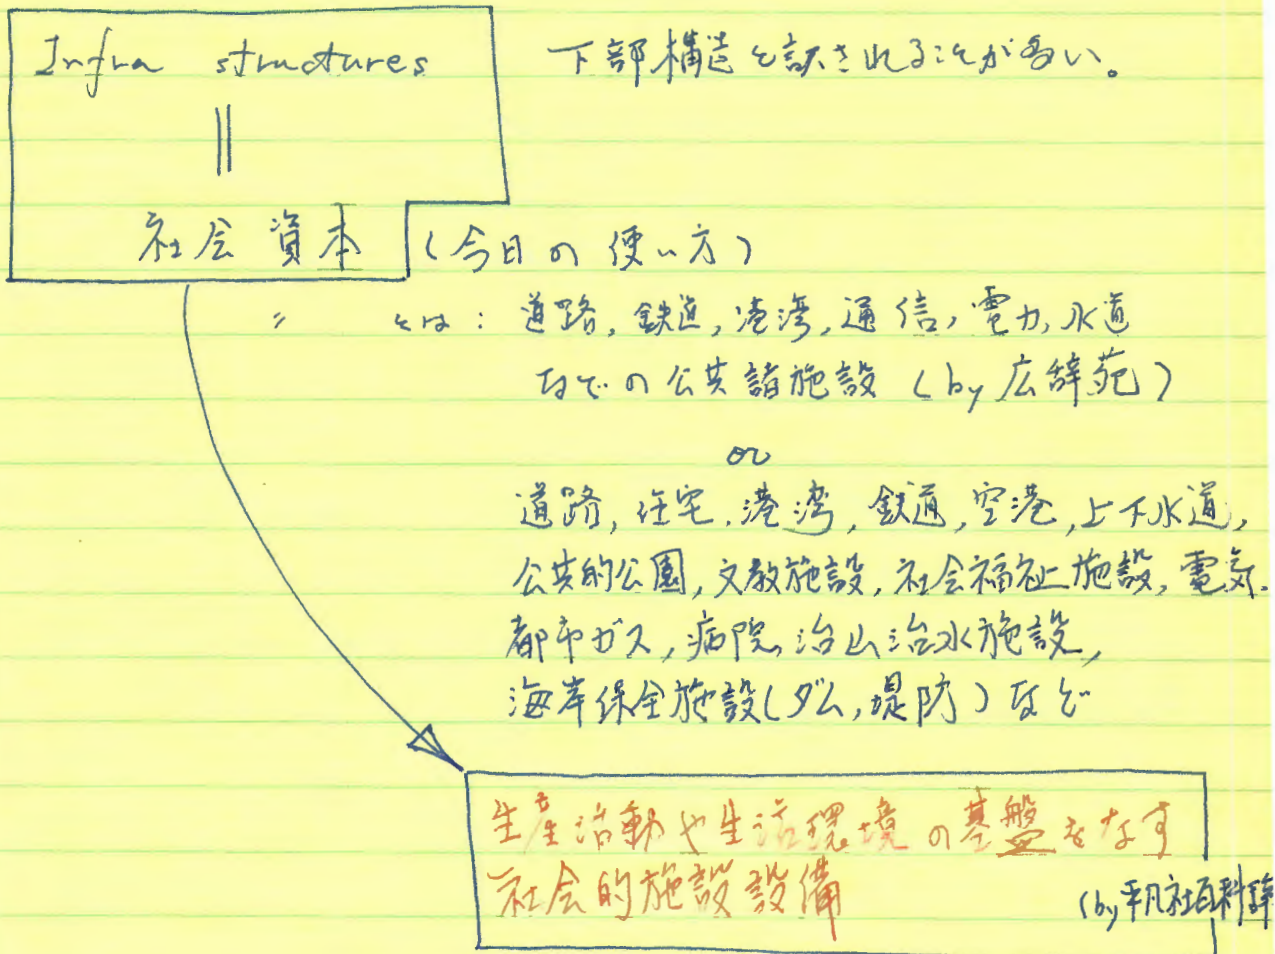 Infra structures 下部構造と訳されることが多い。
||
社会資本 (今日の使い方)
〃 とは: 道路, 鉄道, 港湾, 通信, 電力, 水道
などの公共諸施設 (by 広辞苑)
or
道路, 住宅, 港湾, 鉄道, 空港, 上下水道,
公共的公園, 文教施設, 社会福祉施設, 電気.
都市ガス, 病院, 治山治水施設,
海岸保全施設(ダム, 堤防) など
生産活動や生活環境の基盤をなす
社会的施設設備
(by 平凡社百科辞